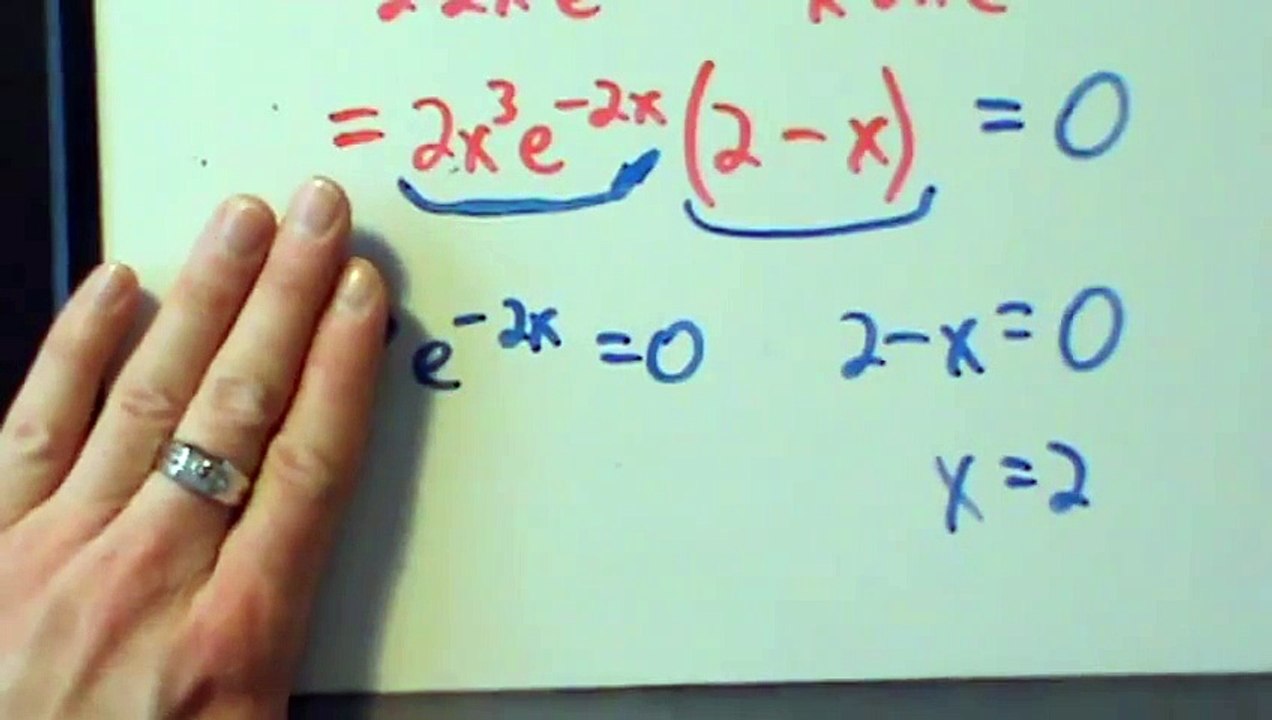 = 2x³e⁻²ˣ(2 - x) = 0
e⁻²ˣ = 0 2 - x = 0
x = 2